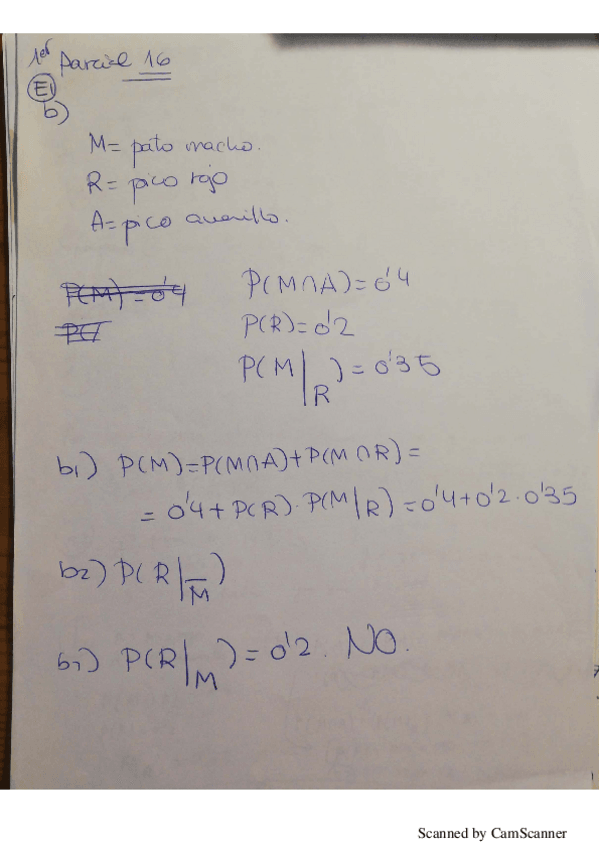 1er Parcial 16
E1
b)
M= pato macho.
R= pico rojo
A= pico amarillo.
P(M)=0'4 P(M∩A)=0'4
P(R)=0'2
P(M|R)=0'35
b1) P(M)=P(M∩A)+P(M∩R)=
=0'4+P(R)·P(M|R)=0'4+0'2·0'35
b2) P(R|M̅)
b3) P(R|M)=0'2. NO.
Scanned by CamScanner